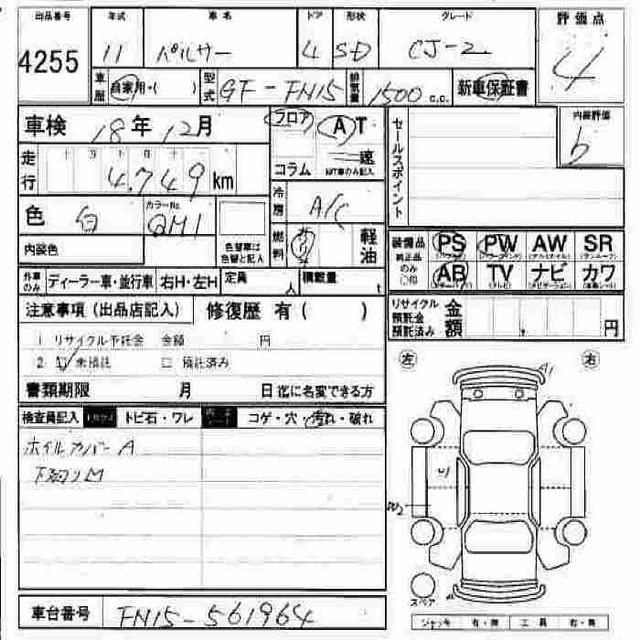 出品番号 年式 車名 ドア 形状 グレード 評価点
4255 11 パルサー 4 SD CJ-2 4
車歴 自家用・( ) 型式 GF-FN15 排気量 1500 c.c. 新車保証書
車検 18年12月 フロア AT セールスポイント 内装評価
走行 4,749 km コラム 速 b
色 白 カラーNo. QM1 冷房 A/C
内装色 色替車は色替と記入 燃料 軽油
装備品 純正品のみ○印 PS PW AW SR
AB TV ナビ カワ
外車のみ ディーラー車・並行車 右H・左H 定員 人 積載量 t
注意事項(出品店記入) 修復歴 有( )
リサイクル預託金預託済み 金額 円
1 リサイクル予託金 金額 円
2 未預託 預託済み
左 右
書類期限 月 日迄に名変できる方
A1
検査員記入 トビ石・ワレ コゲ・穴・汚れ・破れ
ホイルカバーA
U1
下廻りM
スペア
車台番号 FN15-561964
ジャッキ 有・無 工具 有・無